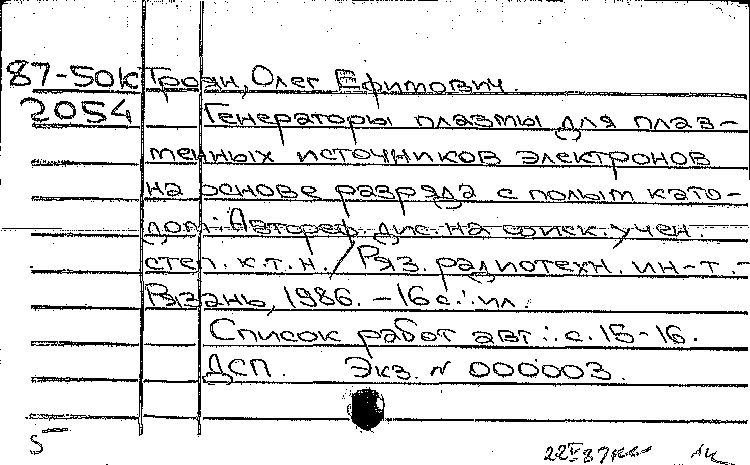 87-50К Троян, Олег Ефимович.
2054 Генераторы плазмы для плаз-
менных источников электронов
на основе разряда с полым като-
дом: Автореф. дис. на соиск. учен.
степ. к.т.н. / Ряз. радиотехн. ин-т. -
Рязань, 1986. - 16 с.: ил.
Список работ авт.: с. 15-16.
ДСП. Экз. N 000003.
5